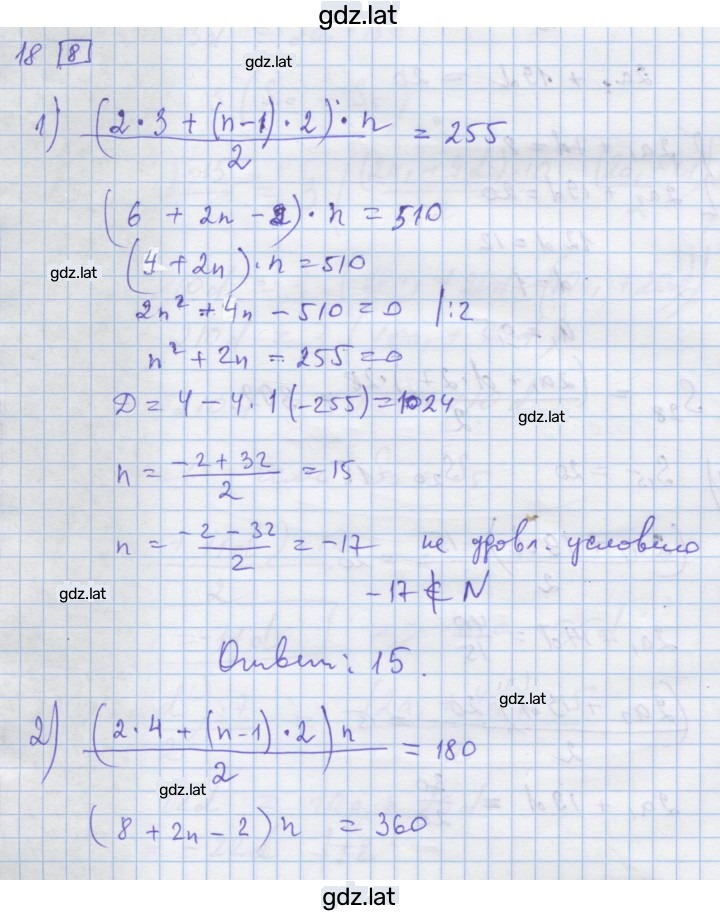 gdz.lat
18 8
gdz.lat
1) (2·3 + (n-1)·2)·n / 2 = 255
(6 + 2n - 2)·n = 510
gdz.lat
(4 + 2n)·n = 510
2n² + 4n - 510 = 0 |:2
n² + 2n - 255 = 0
D = 4 - 4·1(-255) = 1024
gdz.lat
n = (-2 + 32) / 2 = 15
n = (-2 - 32) / 2 = -17 не удовл. условию
gdz.lat
-17 ∉ N
Ответ: 15.
gdz.lat
2) (2·4 + (n-1)·2) n / 2 = 180
gdz.lat
(8 + 2n - 2) n = 360
gdz.lat